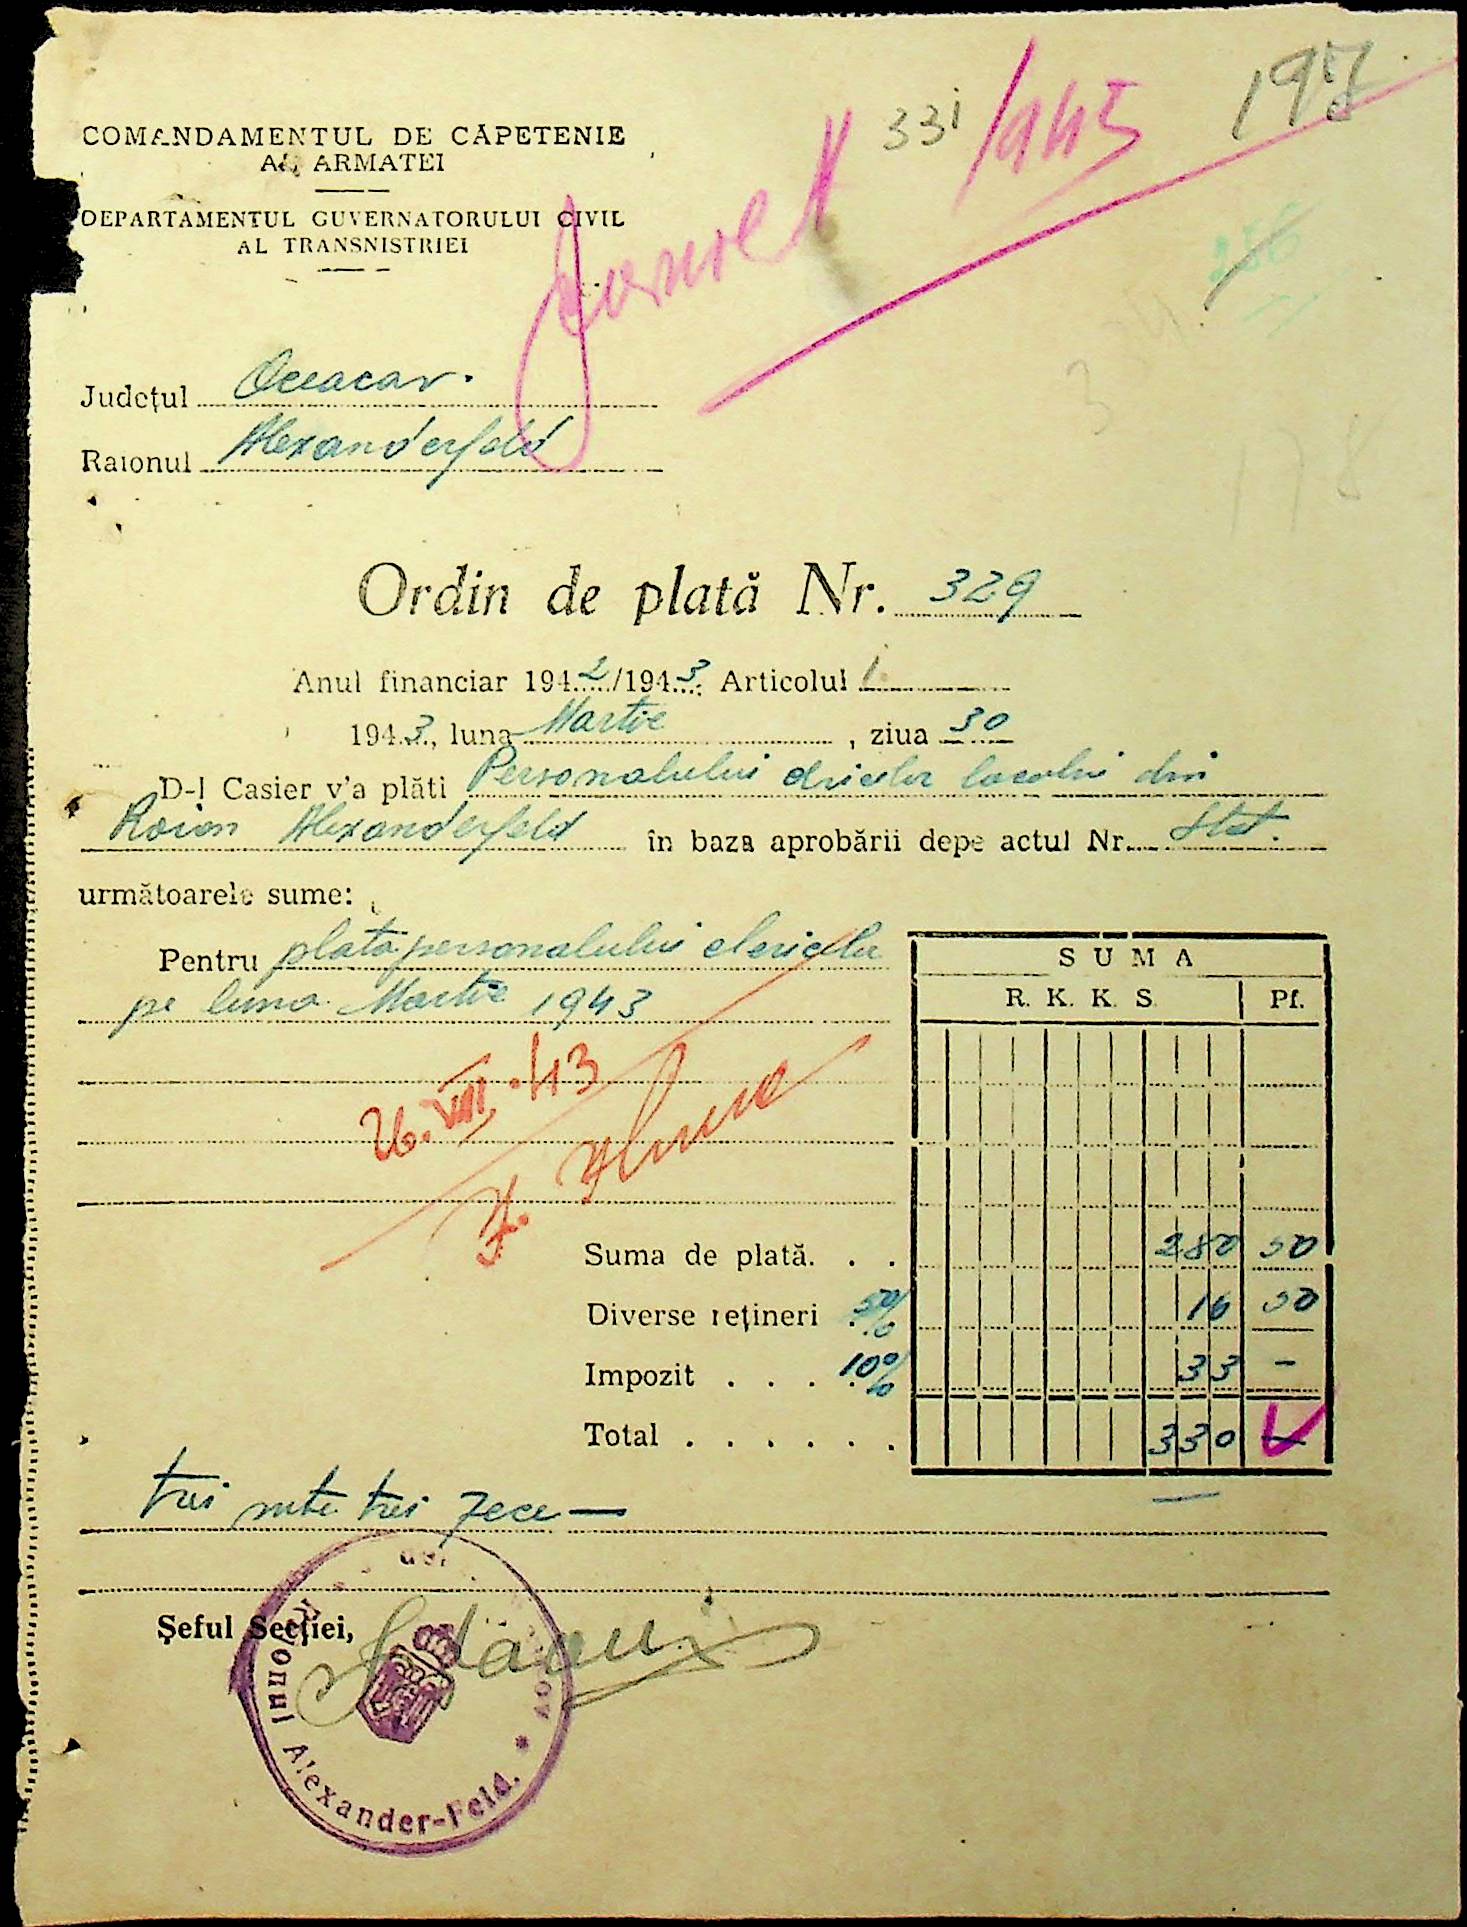 331 /943 197
COMANDAMENTUL DE CĂPETENIE
AL ARMATEI
DEPARTAMENTUL GUVERNATORULUI CIVIL
AL TRANSNISTRIEI
256
Județul Oceacov.
Raionul Alexanderfeld
178
Ordin de plată Nr. 329
Anul financiar 1942/1943 Articolul 1.
1943, luna Martie, ziua 30
D-l Casier v'a plăti Personalului clericilor localnici din
Raion Alexanderfeld în baza aprobării depe actul Nr. Stat.
următoarele sume:
Pentru plata personalului clericilor
pe luna Martie 1943
SUMA
R. K. K. S. Pf.
26.VIII.43
Suma de plată. . . 280 50
Diverse rețineri 5% 16 50
Impozit . . . 10% 33 -
Total . . . . . . 330 —
trei sute trei zece —
Șeful Secției,
Raionul Alexander-Feld. *